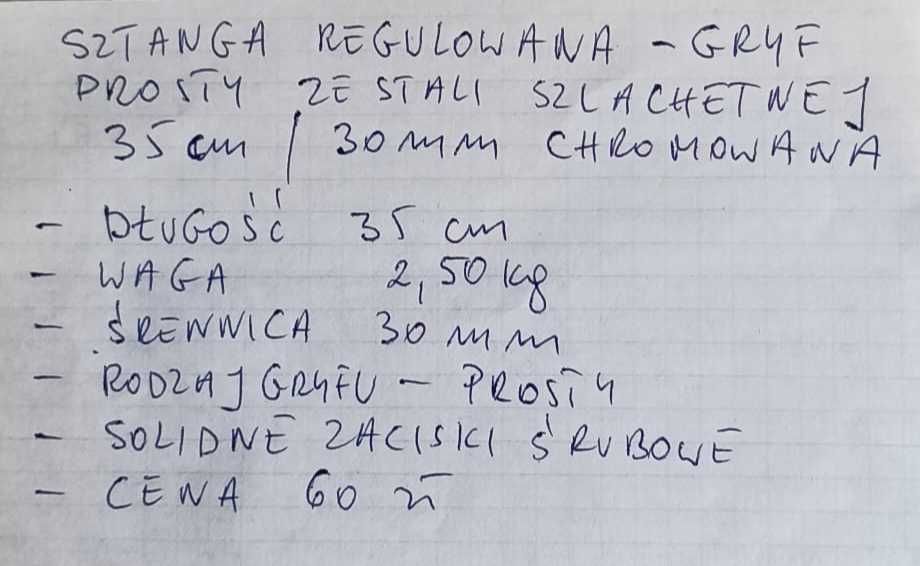 SZTANGA REGULOWANA - GRYF
PROSTY ZE STALI SZLACHETNEJ
35 cm / 30 mm CHROMOWANA
- DŁUGOŚĆ 35 cm
- WAGA 2,50 kg
- ŚREWNICA 30 mm
- RODZAJ GRYFU - PROSTY
- SOLIDNE ZACISKI ŚRUBOWE
- CENA 60 zł